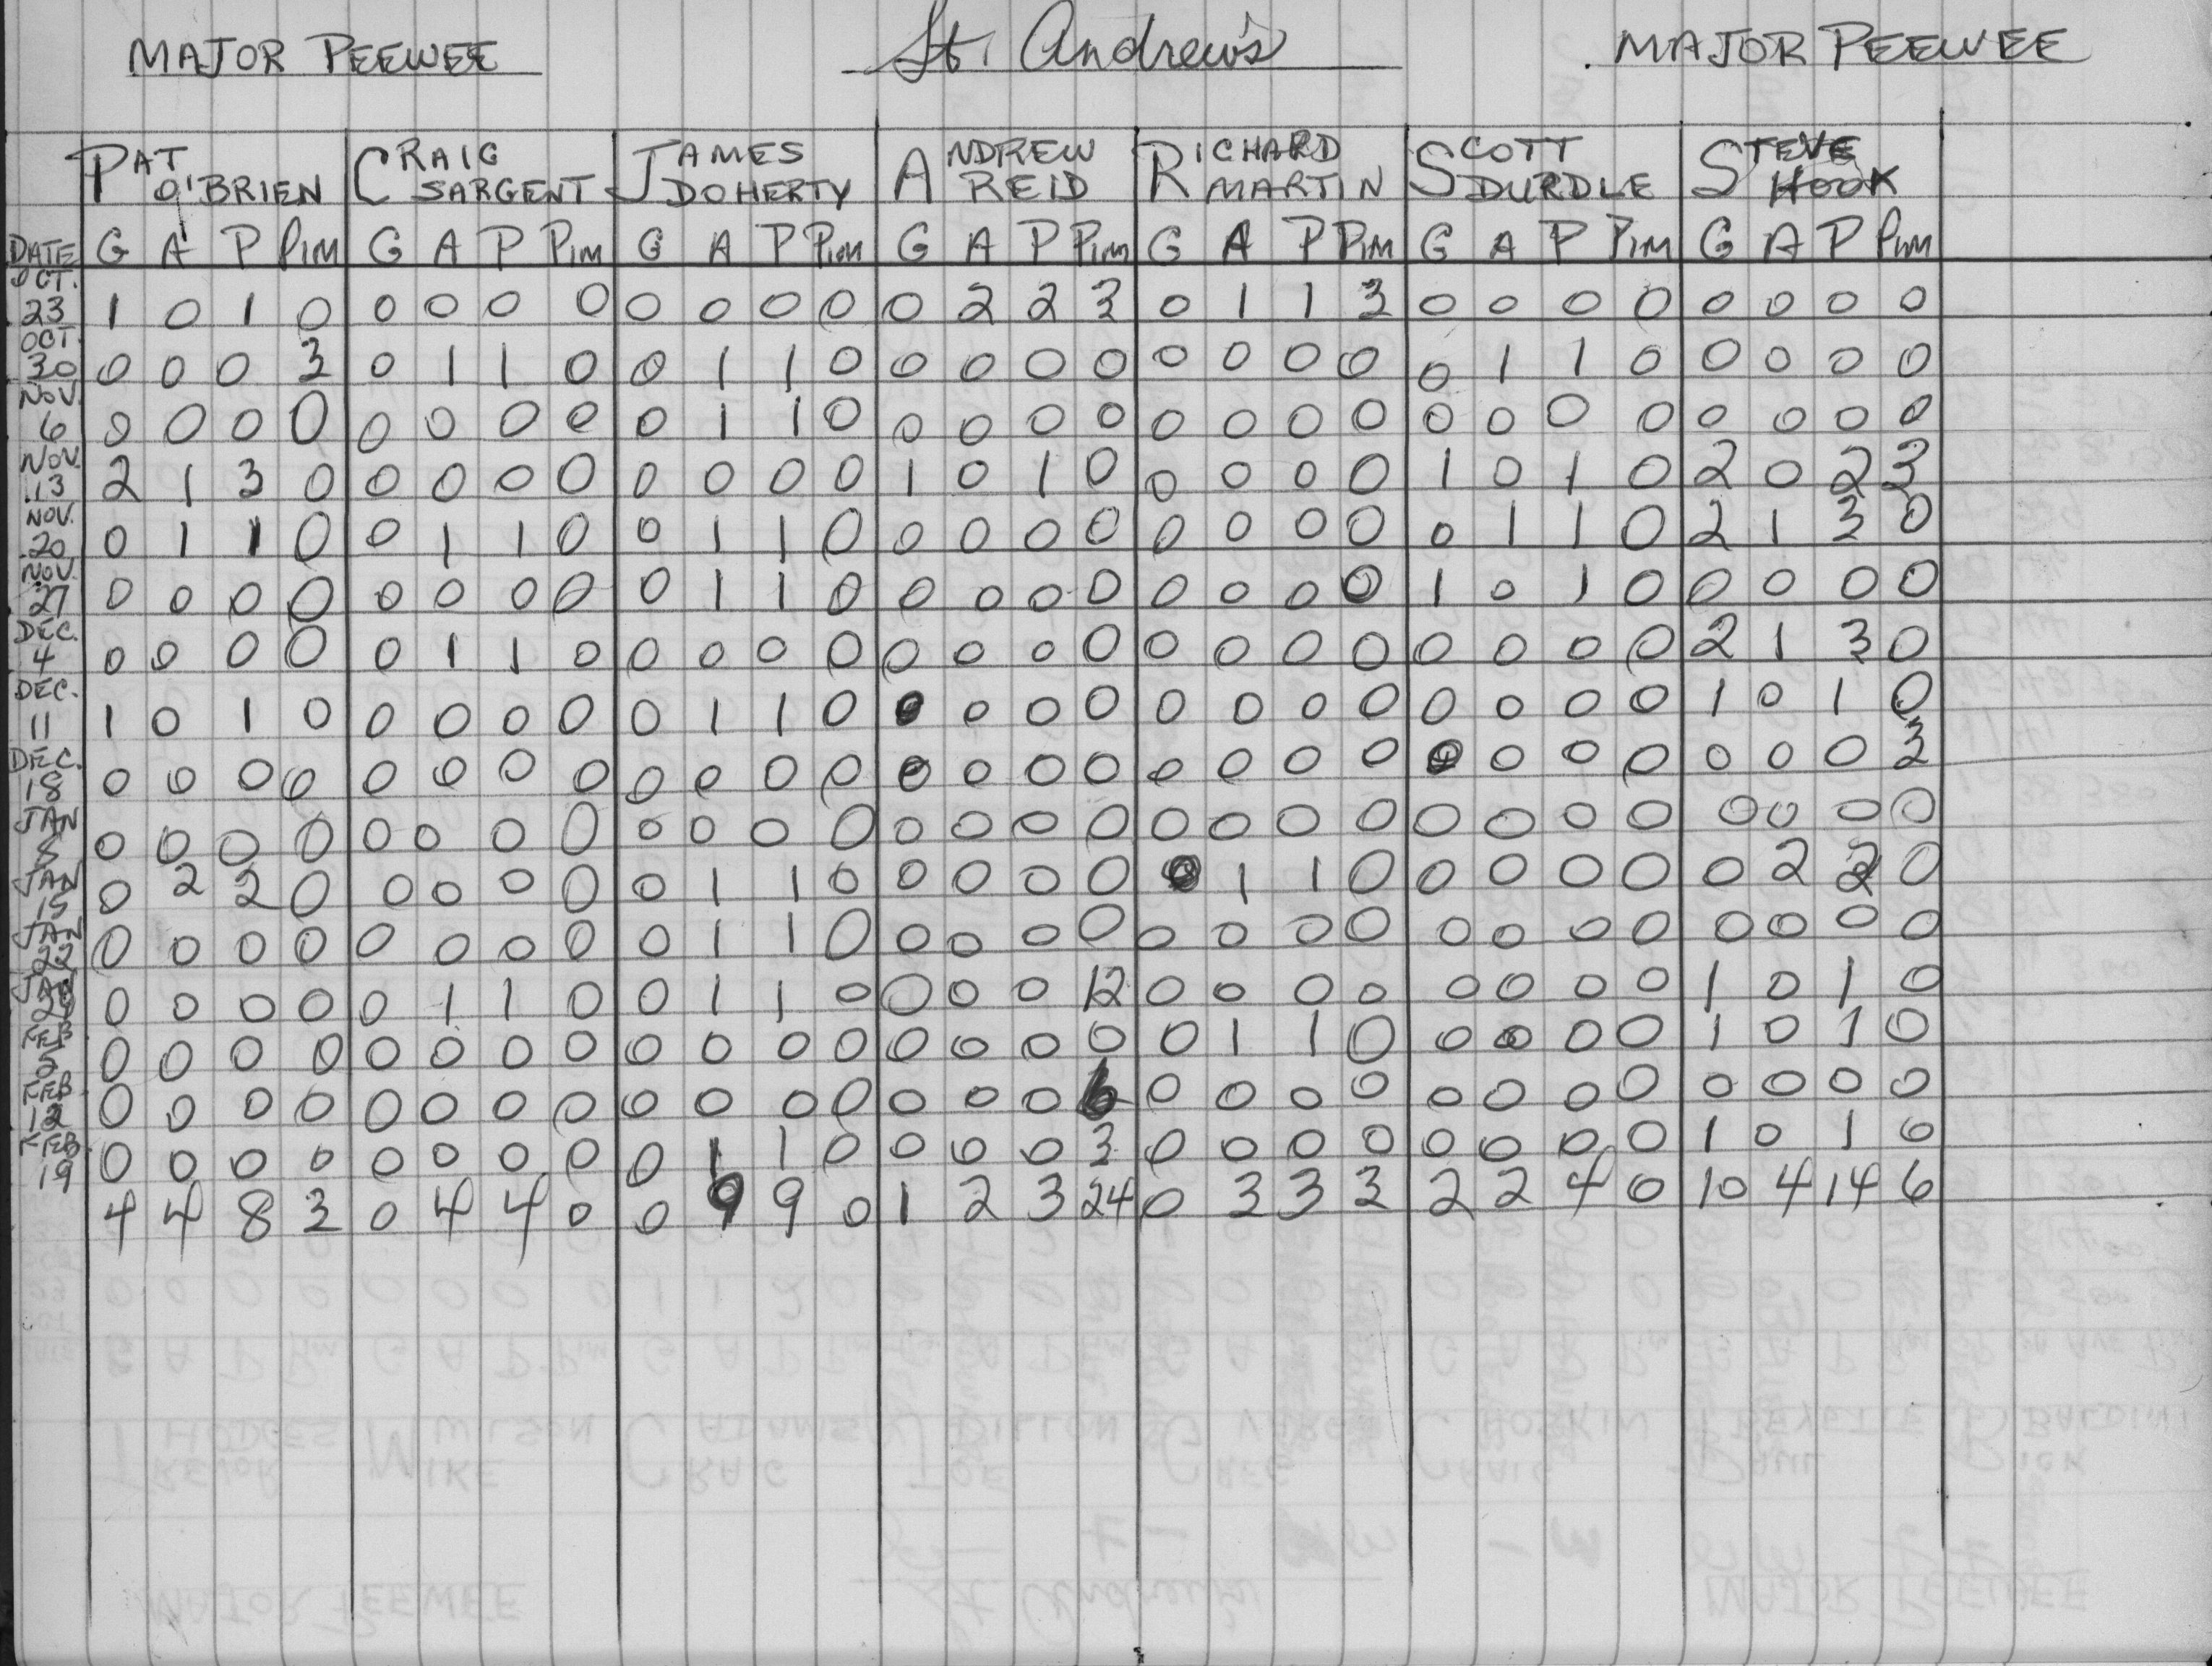 MAJOR PEEWEE St. Andrew's MAJOR PEEWEE
PAT O'BRIEN CRAIG SARGENT JAMES DOHERTY ANDREW REID RICHARD MARTIN SCOTT DURDLE STEVE HOOK
DATE G A P PIM G A P PIM G A P PIM G A P PIM G A P PIM G A P PIM G A P PIM
OCT. 23 1 0 1 0 0 0 0 0 0 0 0 0 0 2 2 3 0 1 1 3 0 0 0 0 0 0 0 0
OCT. 30 0 0 0 3 0 1 1 0 0 1 1 0 0 0 0 0 0 0 0 0 0 1 1 0 0 0 0 0
NOV. 6 0 0 0 0 0 0 0 0 0 1 1 0 0 0 0 0 0 0 0 0 0 0 0 0 0 0 0 0
NOV. 13 2 1 3 0 0 0 0 0 0 0 0 0 1 0 1 0 0 0 0 0 1 0 1 0 2 0 2 3
NOV. 20 0 1 1 0 0 1 1 0 0 1 1 0 0 0 0 0 0 0 0 0 0 1 1 0 2 1 3 0
NOV. 27 0 0 0 0 0 0 0 0 0 1 1 0 0 0 0 0 0 0 0 0 1 0 1 0 0 0 0 0
DEC. 4 0 0 0 0 0 1 1 0 0 0 0 0 0 0 0 0 0 0 0 0 0 0 0 0 2 1 3 0
DEC. 11 1 0 1 0 0 0 0 0 0 1 1 0 0 0 0 0 0 0 0 0 0 0 0 0 1 0 1 0
DEC. 18 0 0 0 0 0 0 0 0 0 0 0 0 0 0 0 0 0 0 0 0 0 0 0 0 0 0 0 3
JAN 8 0 0 0 0 0 0 0 0 0 0 0 0 0 0 0 0 0 0 0 0 0 0 0 0 0 0 0 0
JAN 15 0 2 2 0 0 0 0 0 0 1 1 0 0 0 0 0 0 1 1 0 0 0 0 0 0 2 2 0
JAN 22 0 0 0 0 0 0 0 0 0 1 1 0 0 0 0 0 0 0 0 0 0 0 0 0 0 0 0 0
JAN 29 0 0 0 0 0 1 1 0 0 1 1 0 0 0 0 12 0 0 0 0 0 0 0 0 1 0 1 0
FEB 5 0 0 0 0 0 0 0 0 0 0 0 0 0 0 0 0 0 1 1 0 0 0 0 0 1 0 1 0
FEB 12 0 0 0 0 0 0 0 0 0 0 0 0 0 0 0 6 0 0 0 0 0 0 0 0 0 0 0 0
FEB 19 0 0 0 0 0 0 0 0 0 1 1 0 0 0 0 3 0 0 0 0 0 0 0 0 1 0 1 0
4 4 8 3 0 4 4 0 0 9 9 0 1 2 3 24 0 3 3 3 2 2 4 0 10 4 14 6